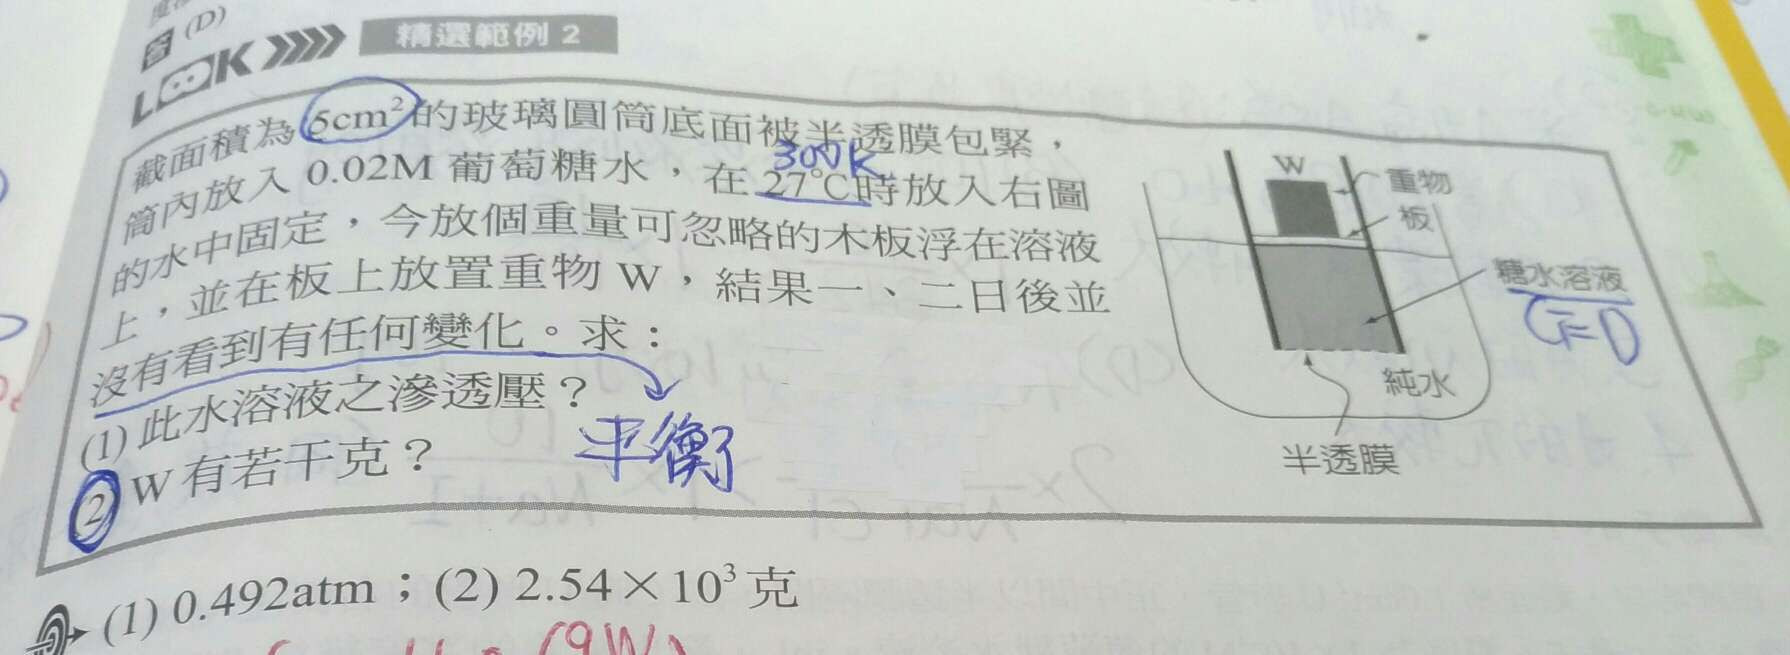 答 (D)
LOOK 精選範例 2
截面積為 5cm² 的玻璃圓筒底面被半透膜包緊，
300K
筒內放入 0.02M 葡萄糖水，在 27℃時放入右圖
的水中固定，今放個重量可忽略的木板浮在溶液
上，並在板上放置重物 W，結果一、二日後並
沒有看到有任何變化。求：
(1) 此水溶液之滲透壓？
平衡
(2) W 有若干克？
W
重物
板
糖水溶液
純水
半透膜
(1) 0.492atm；(2) 2.54×10³克